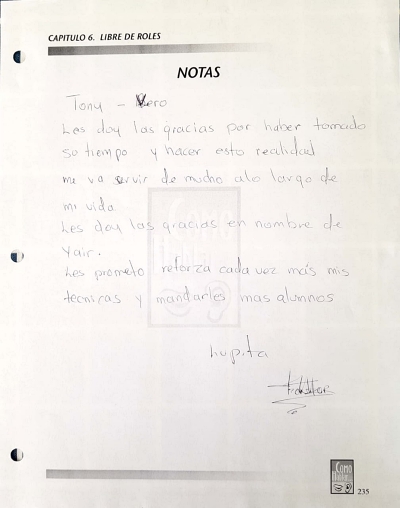 CAPITULO 6. LIBRE DE ROLES
NOTAS
Tony - Vero
Les doy las gracias por haber tomado
su tiempo y hacer esto realidad
me va servir de mucho alo largo de
mi vida
Les doy las gracias en nombre de
Yair.
Les prometo reforza cada vez más mis
tecnicas y mandarles mas alumnos
Lupita
COMO
235